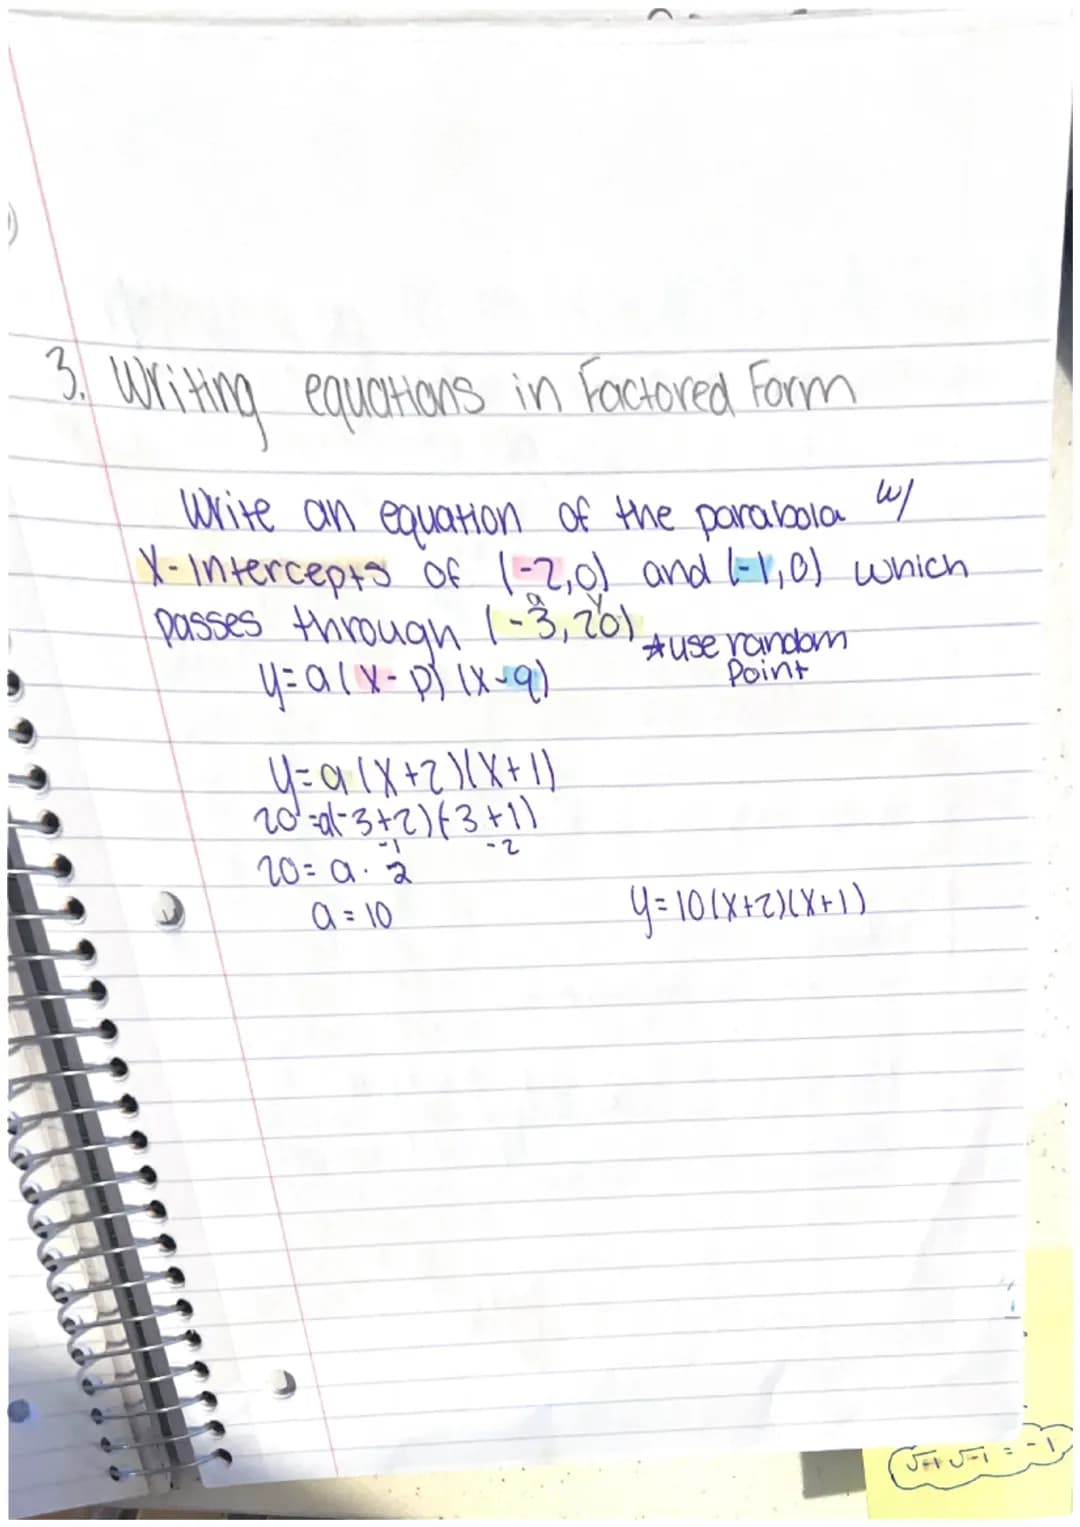 3. Writing equations in Factored Form
Write an equation of the parabola w/
X-Intercepts of (-2,0) and (-1,0) which
passes through (-3,20) *use random
Point
y=a(x-p)(x-q)
y=a(x+2)(x+1)
20=a(-3+2)(-3+1)
-1 -2
20=a·2
a=10
y=10(x+2)(x+1)
√-1 √-1 = -1